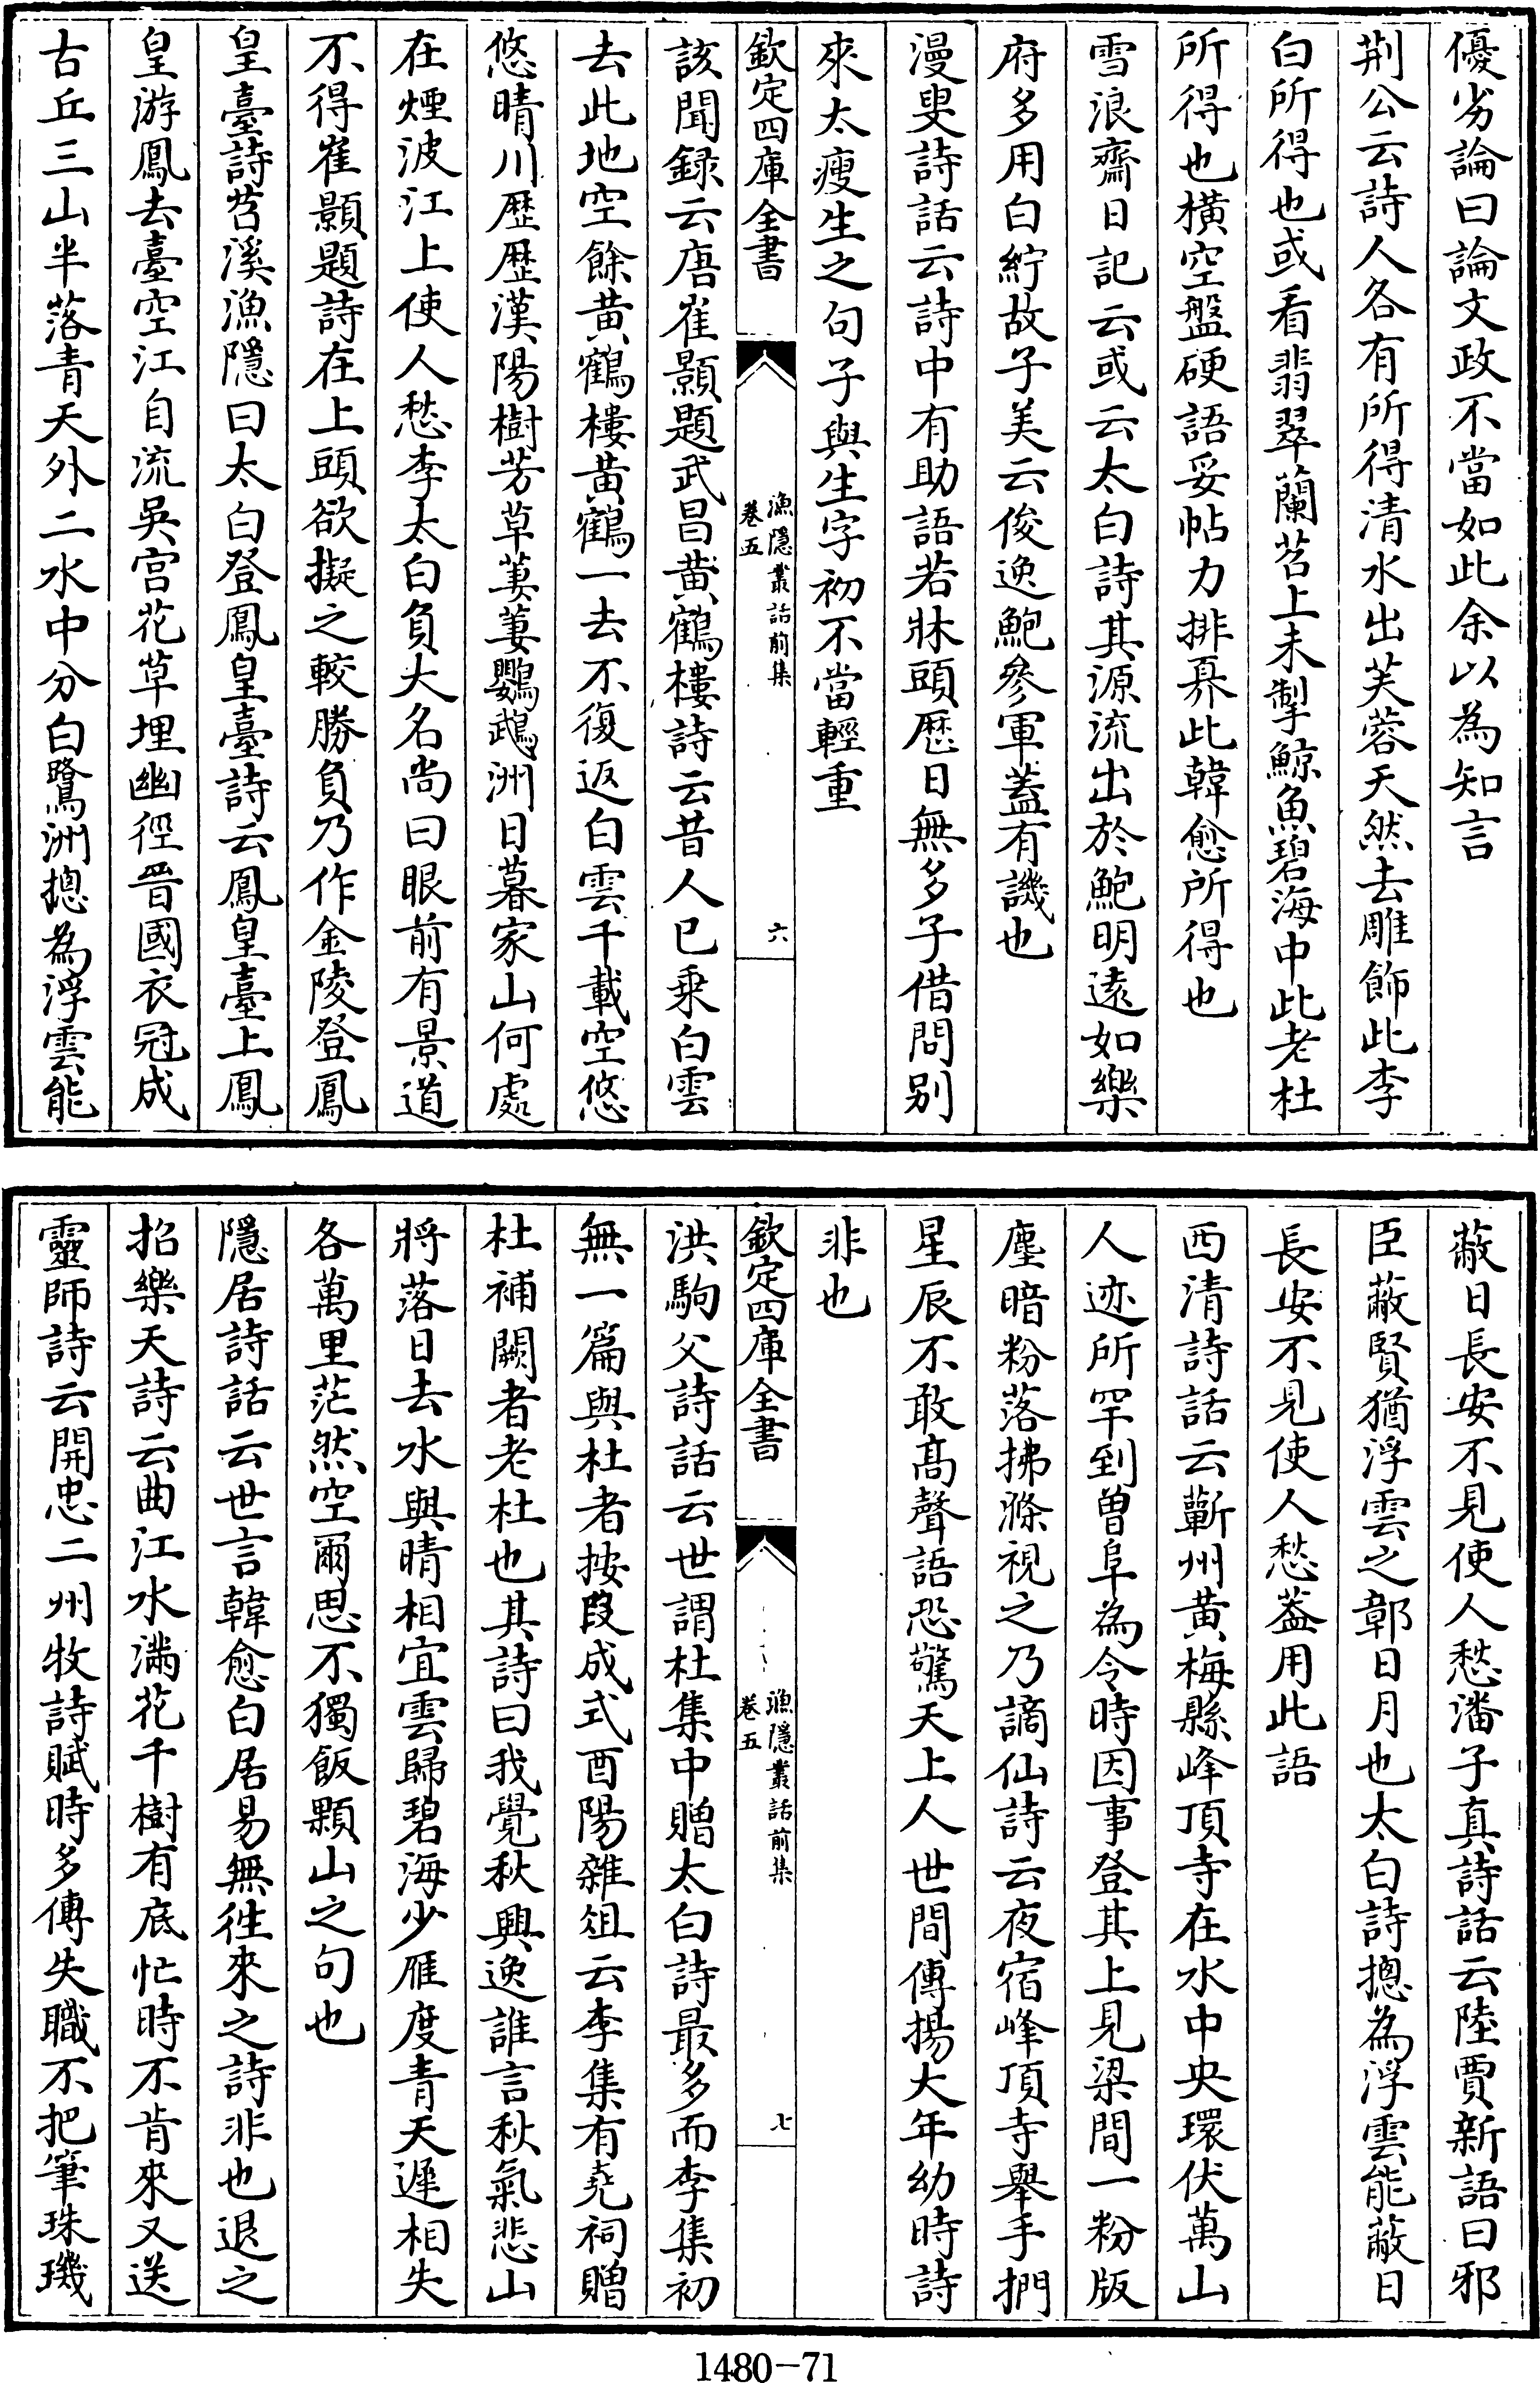 優劣論曰論文政不當如此余以為知言
荆公云詩人各有所得清水出芙蓉天然去雕飾此李
白所得也或看翡翠蘭苕上未掣鯨魚碧海中此老杜
所得也橫空盤硬語妥帖力排奡此韓愈所得也
雪浪齋日記云或云太白詩其源流出於鮑明遠如樂
府多用白紵故子美云俊逸鮑參軍蓋有譏也
漫叟詩話云詩中有助語若牀頭歷日無多子借問别
來太瘦生之句子與生字初不當輕重
欽定四庫全書
漁隱叢話前集
卷五
六
該聞録云唐崔顥題武昌黄鶴樓詩云昔人已乗白雲
去此地空餘黄鶴樓黄鶴一去不復返白雲千載空悠
悠晴川歴歴漢陽樹芳草萋萋鸚鵡洲日暮家山何處
在煙波江上使人愁李太白負大名尚曰眼前有景道
不得崔顥題詩在上頭欲擬之較勝負乃作金陵登鳳
皇臺詩苕溪漁隱曰太白登鳳皇臺詩云鳳皇臺上鳳
皇游鳳去臺空江自流吳宫花草埋幽徑晉國衣冠成
古丘三山半落青天外二水中分白鷺洲摠為浮雲能
蔽日長安不見使人愁潘子真詩話云陸賈新語曰邪
臣蔽賢猶浮雲之鄣日月也太白詩摠為浮雲能蔽日
長安不見使人愁葢用此語
西清詩話云蘄州黄梅縣峰頂寺在水中央環伏萬山
人迹所罕到曽阜為令時因事登其上見梁間一粉版
塵暗粉落拂滌視之乃謫仙詩云夜宿峰頂寺舉手捫
星辰不敢髙聲語恐驚天上人世間傳揚大年幼時詩
非也
欽定四庫全書
漁隱叢話前集
卷五
七
洪駒父詩話云世謂杜集中贈太白詩最多而李集初
無一篇與杜者按段成式酉陽雜俎云李集有堯祠贈
杜補闕者老杜也其詩曰我覺秋興逸誰言秋氣悲山
將落日去水與晴相宜雲歸碧海少雁度青天遲相失
各萬里茫然空爾思不獨飯顆山之句也
隱居詩話云世言韓愈白居易無徃來之詩非也退之
招樂天詩云曲江水滿花千樹有底忙時不肯來又送
靈師詩云開忠二州牧詩賦時多傳失職不把筆珠璣
1480-71